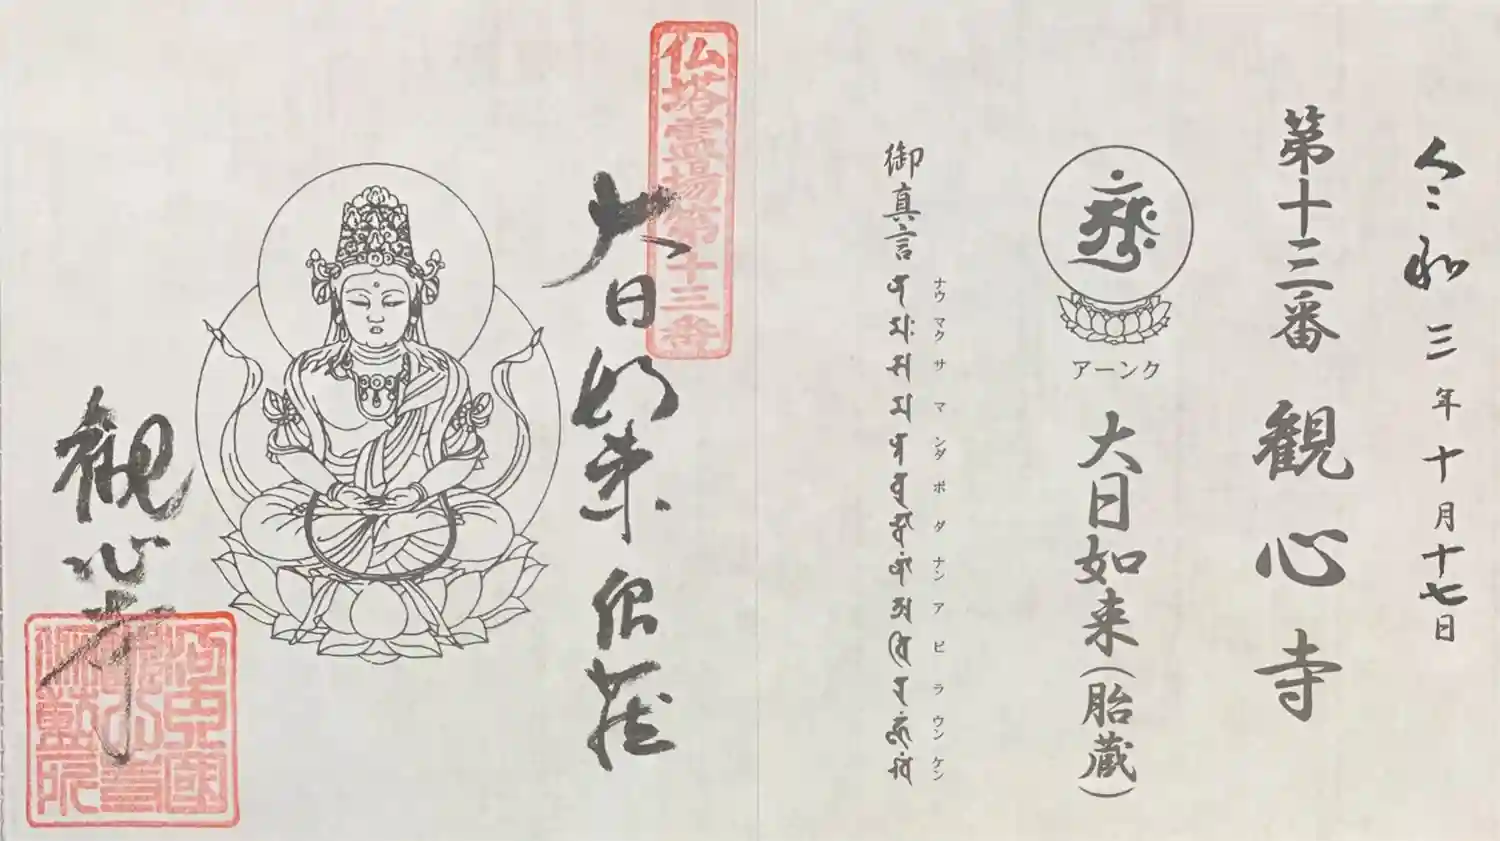 令和三年十月十七日
第十三番 観心寺
アーンク
大日如来(胎蔵)
御真言
ナウマクサマンダボダナンアビラウンケン
仏塔霊場第十三番
大日如来胎蔵
観心寺